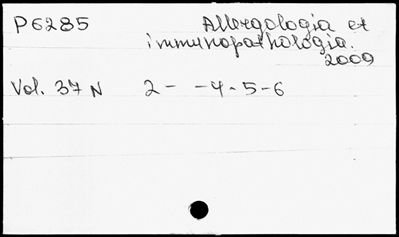 P6285 Allergologia et
immunopathologia.
2009
Vol. 37 N 2- -4-5-6